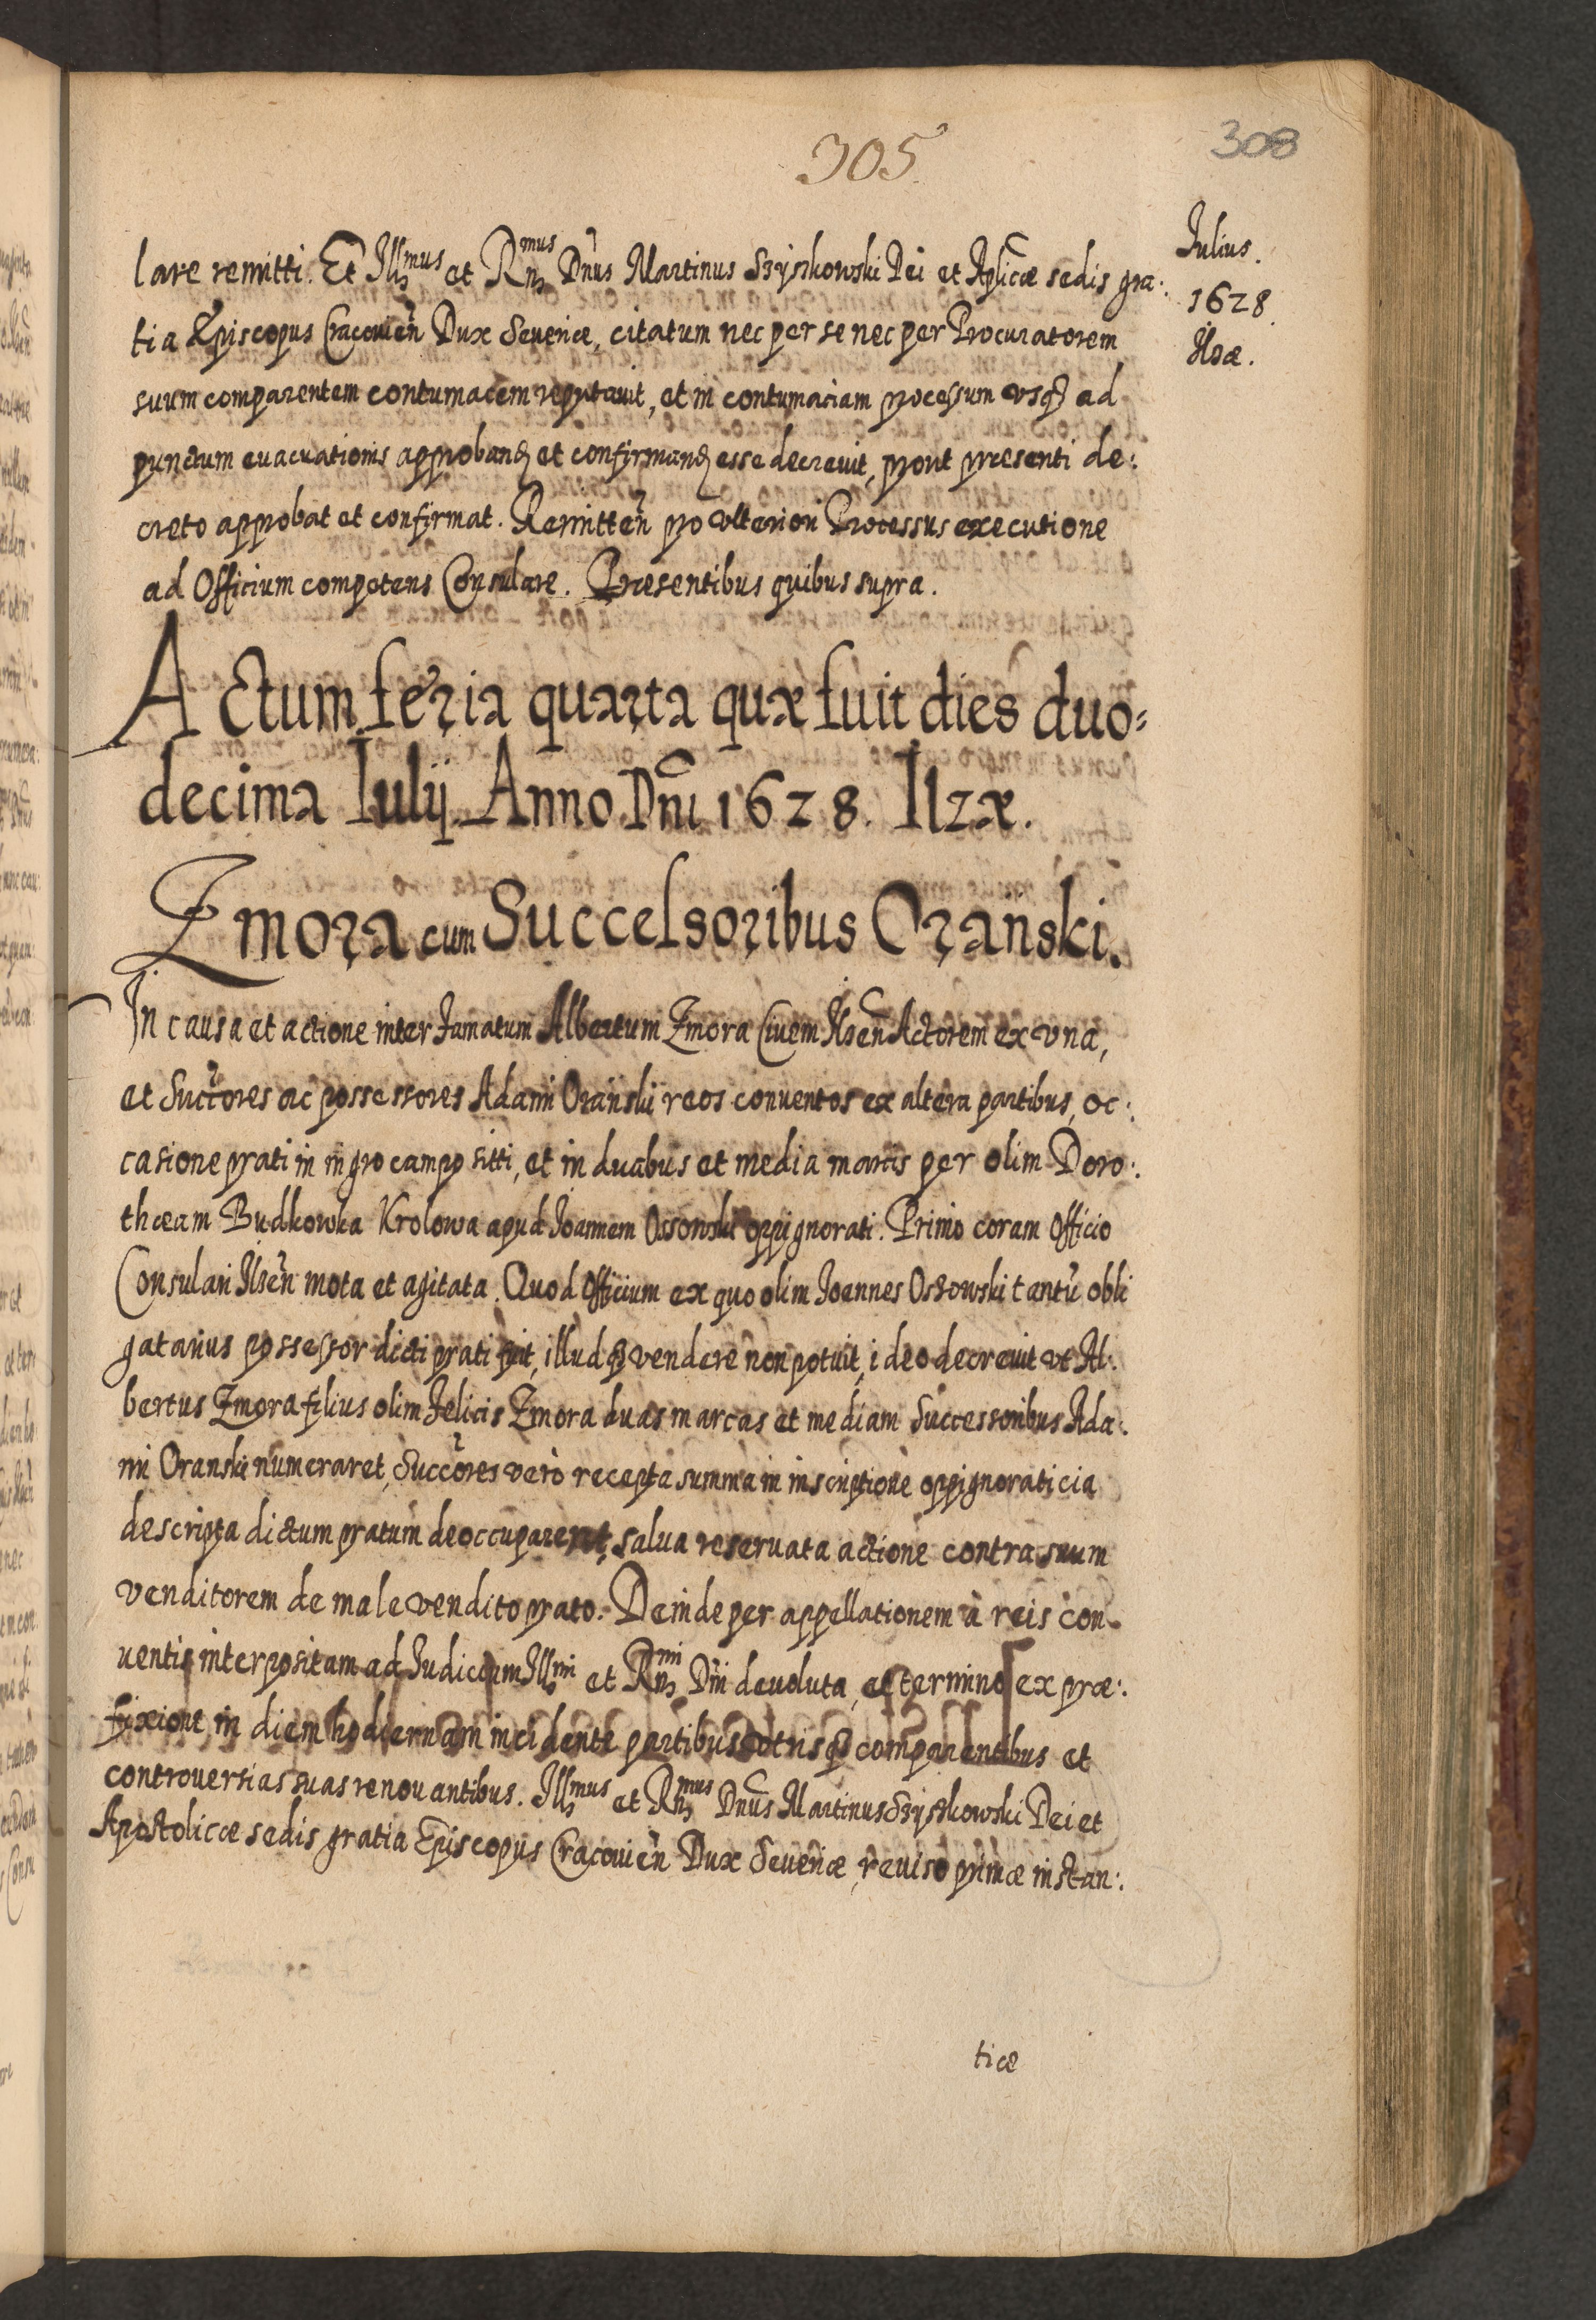 305
308
Julius.
1628.
Ilzæ.
lare remitti. Et Illmus et Rmus Dnus Martinus Szyszkowski Dei et Aplicæ sedis gra:
tia Episcopus Cracovien Dux Severiæ, citatum nec per se nec per Procuratorem
suum comparentem contumacem reputavit, et in contumaciam processum vsq ad
punctum evacuationis approband et confirmand esse decrevit, prout præsenti de:
creto approbat et confirmat. Remitten pro vlteriori Processus executione
ad Officium competens Consulare. Præsentibus quibus supra.
Actum feria quarta quæ fuit dies duo=
decima Iulij Anno Dni 1628. Ilzæ.
Zmora cum Successoribus Oranski.
In causa et actione inter famatum Albertum Zmora Civem Ilzen Actorem ex vna,
et Succores ac possessores Adami Oranski reos conventos ex altera partibus, oc:
casione prati in ingro campo sitti, et in duabus et media marcis per olim Doro:
theam Budkowka Krolowa apud Joannem Ossowski oppignorati. Primo coram Officio
Consulari Ilzen mota et agitata. Quod Officium ex quo olim Joannes Ossowski tantu obli
gatarius possessor dicti prati fuit, illudq vendere non potuit, ideo decrevit vt Al:
bertus Zmora filius olim Felicis Zmora duas marcas et mediam Successoribus Ada:
mi Oranski numeraret, Succores verò recepta summa in inscriptione oppignoraticia
descripta dictum pratum deoccuparent, salua reseruata actione contra suum
venditorem de male vendito prato. Deinde per appellationem à reis con
uentis interpositam ad Judicium Illmi et Rmi Dni devoluta, et termino ex præ:
fixione in diem hodiernam incidente partibus vtrisq comparentibus et
controversias suas renovantibus. Illmus et Rmus Dnus Martinus Szyszkowski Dei et
Apostolicæ sedis gratia Episcopus Cracovien Dux Severiæ, reviso primæ instan:
tiæ